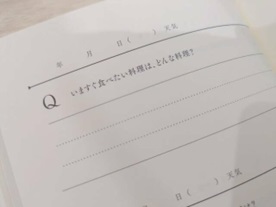 年 月 日( ) 天気
Q いますぐ食べたい料理は、どんな料理?
日( ) 天気